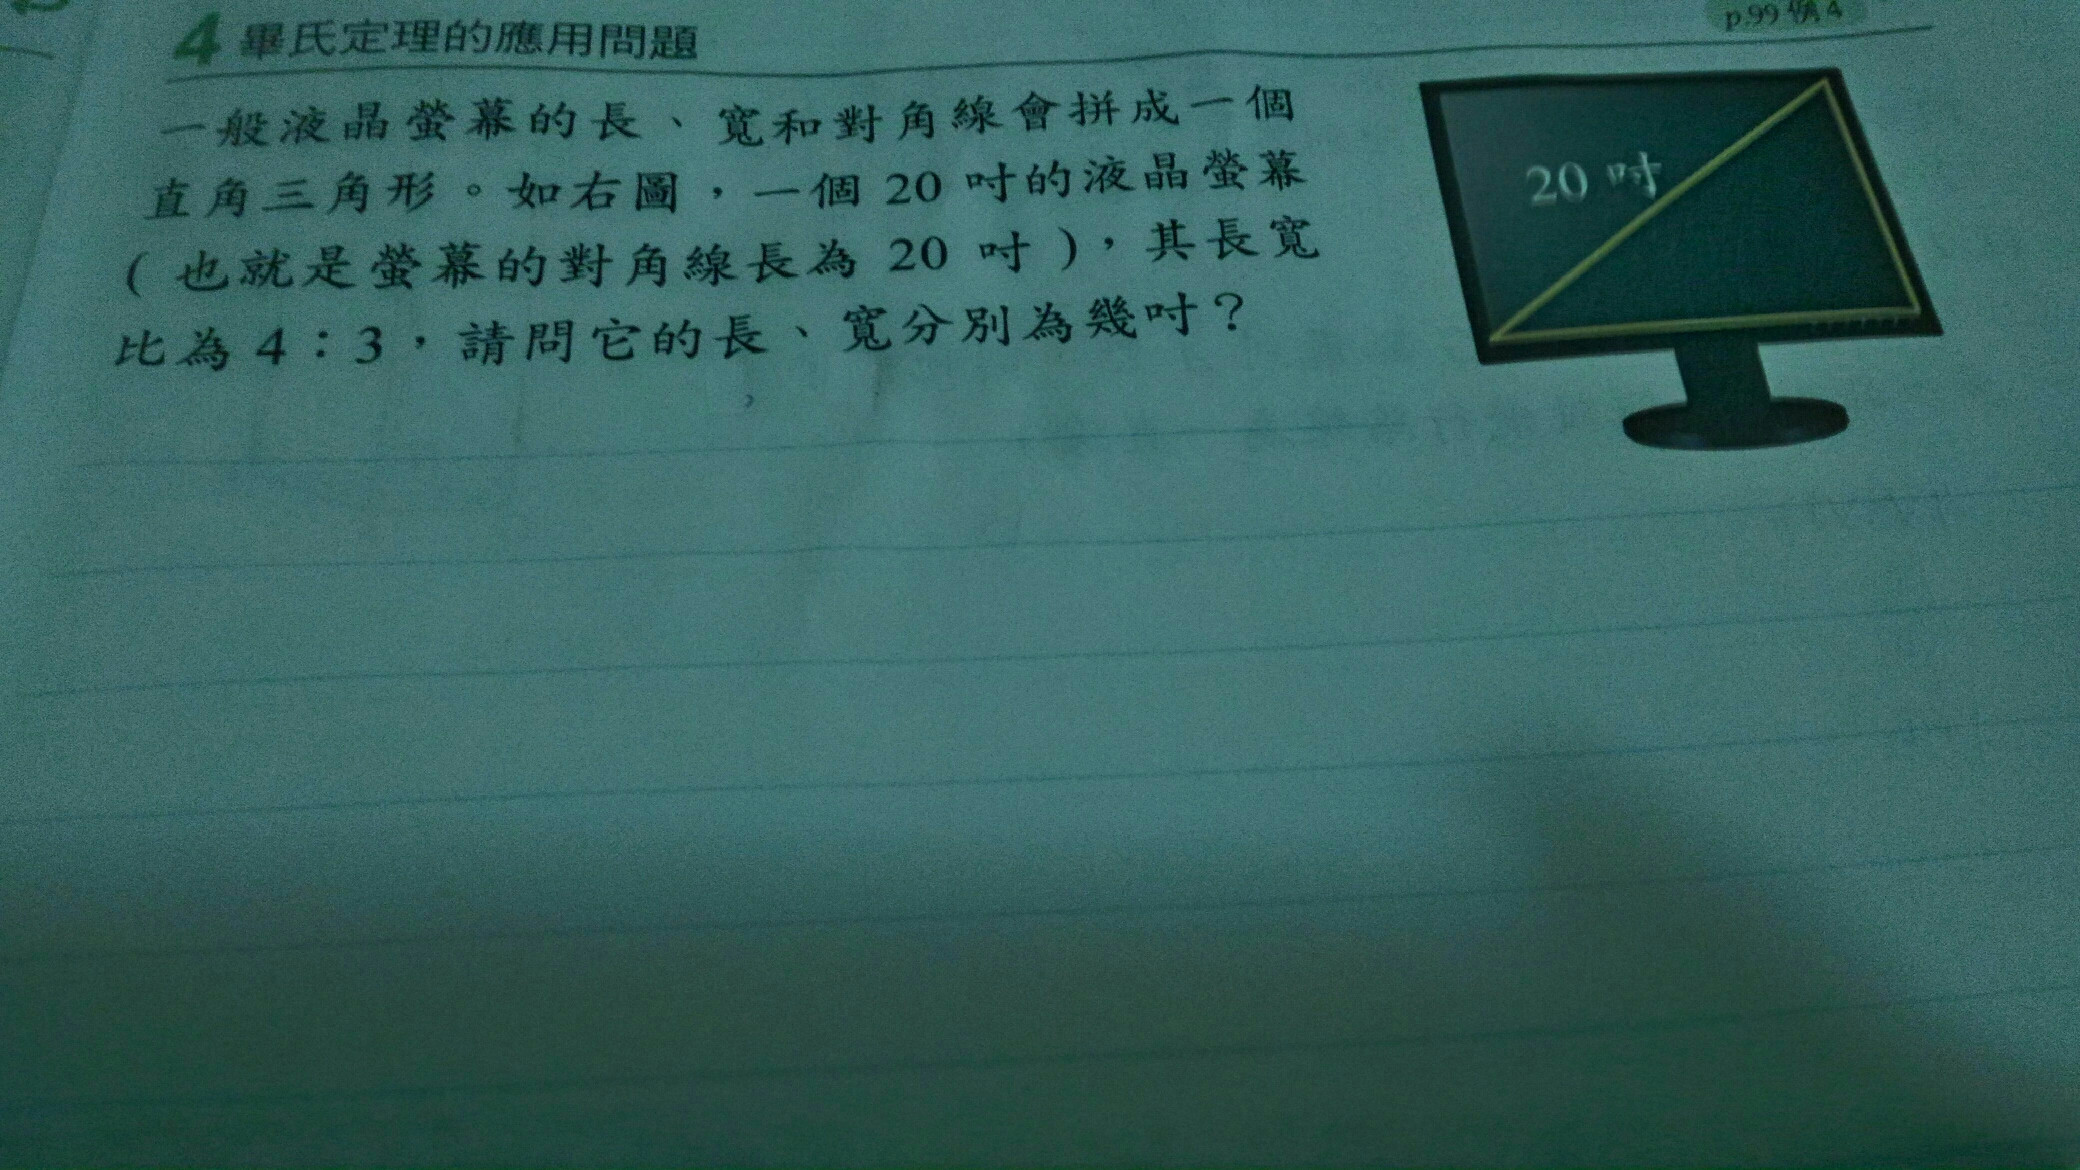 p.99 例 4
4 畢氏定理的應用問題
一般液晶螢幕的長、寬和對角線會拼成一個
直角三角形。如右圖，一個 20 吋的液晶螢幕
( 也就是螢幕的對角線長為 20 吋 )，其長寬
比為 4：3，請問它的長、寬分別為幾吋？
20 吋